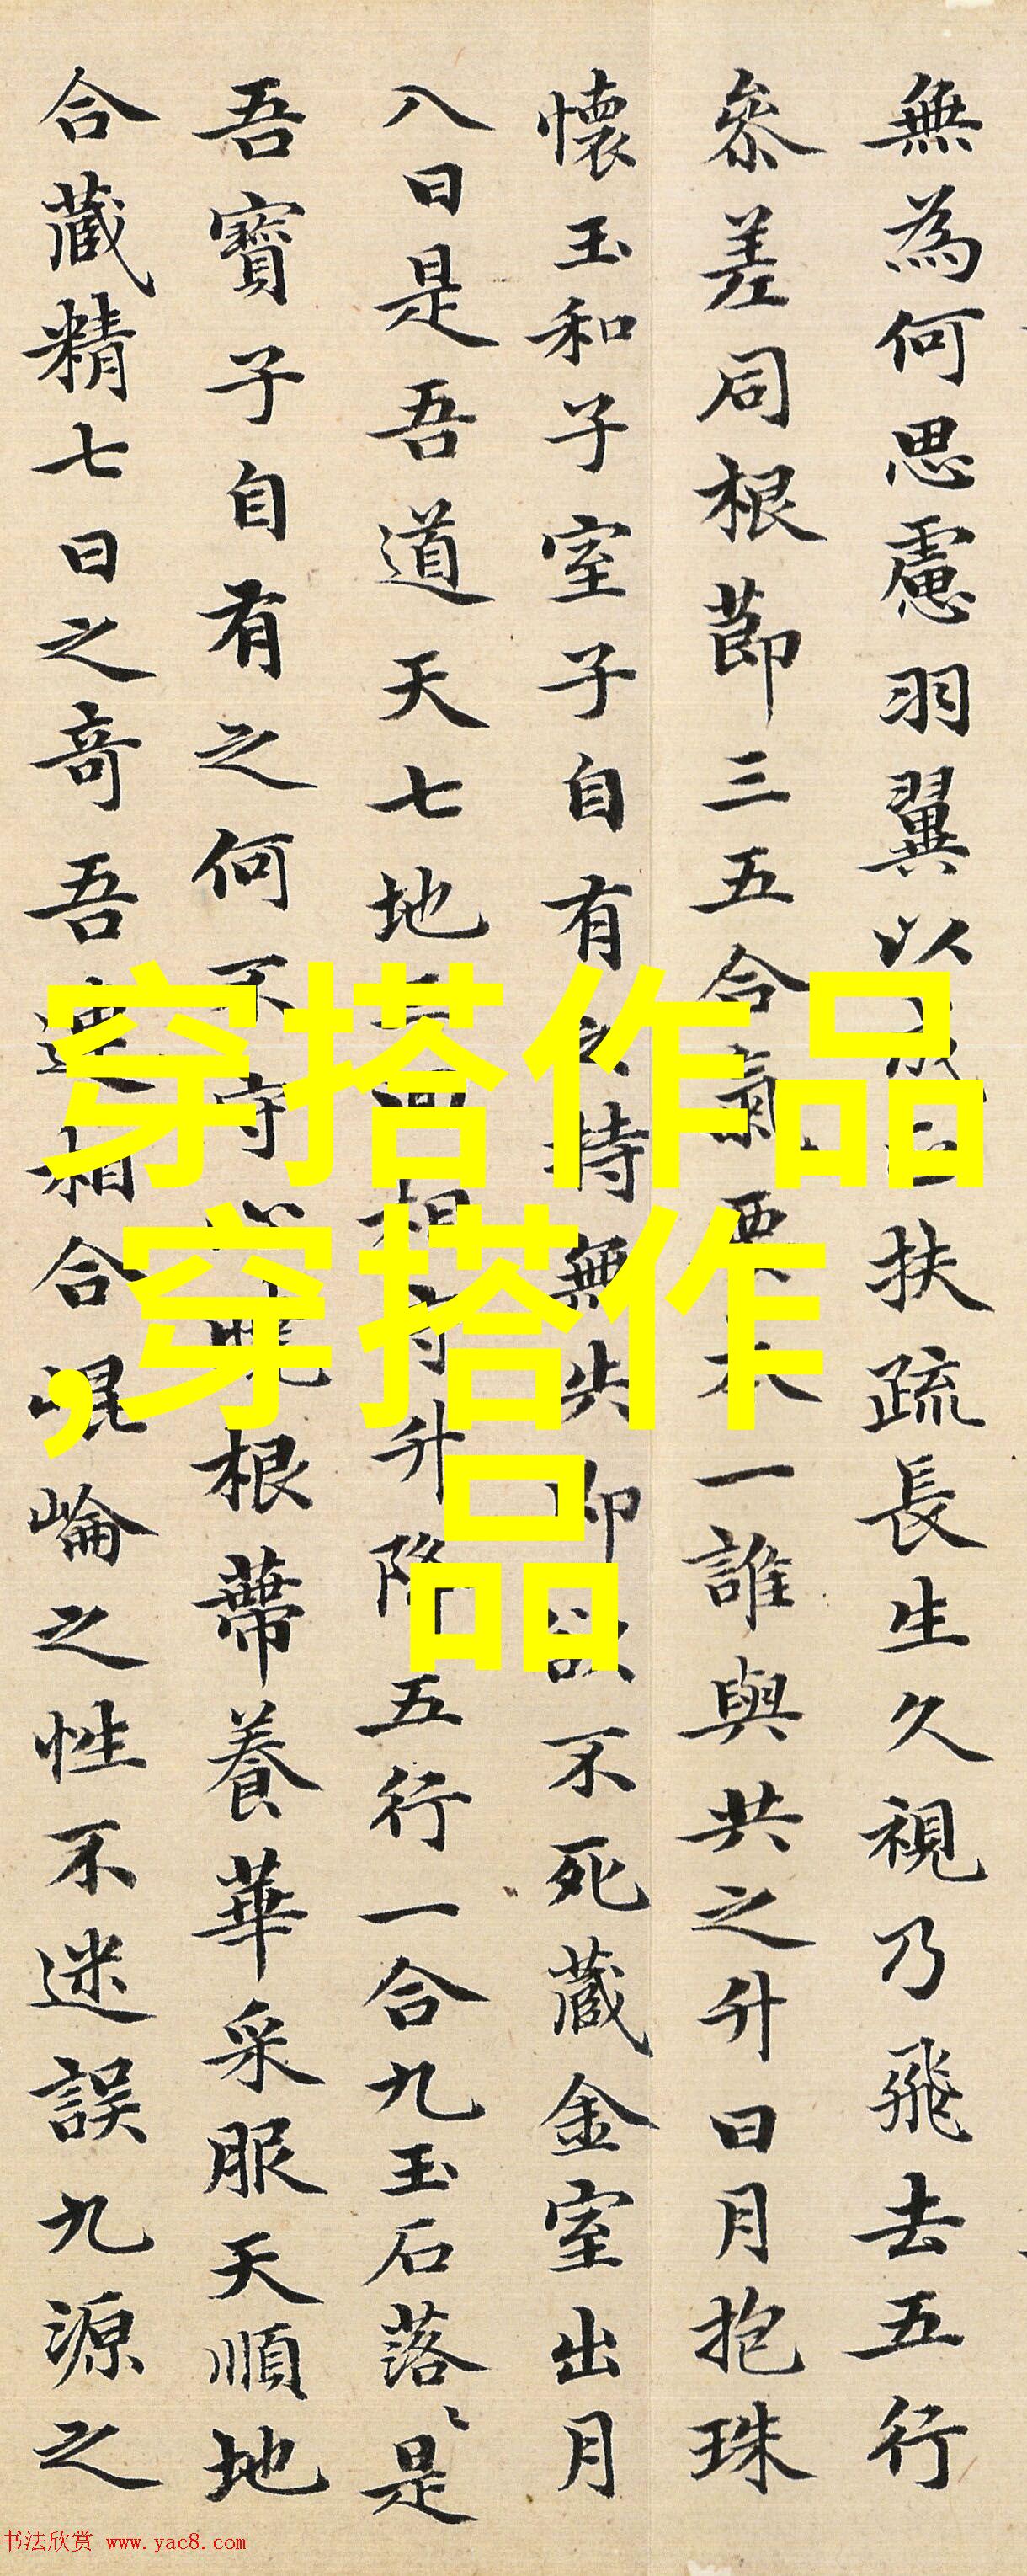 無為何思慮羽翼以成正扶疏長生久視乃飛去五行
參差同根莭三五合氣要本一誰與共之升日月抱珠
懷玉和子室子自有之持無失即欲不死藏金室出月
八日是吾道天七地三回相守升降五行一合九玉石落〻是
吾寶子自有之何不守心曉根蔕養華采服天順地
合藏精七日之奇吾連相合崐崘之性不迷誤九源之
穿搭作品
,穿搭作
品
书法欣赏 www.yac8.com